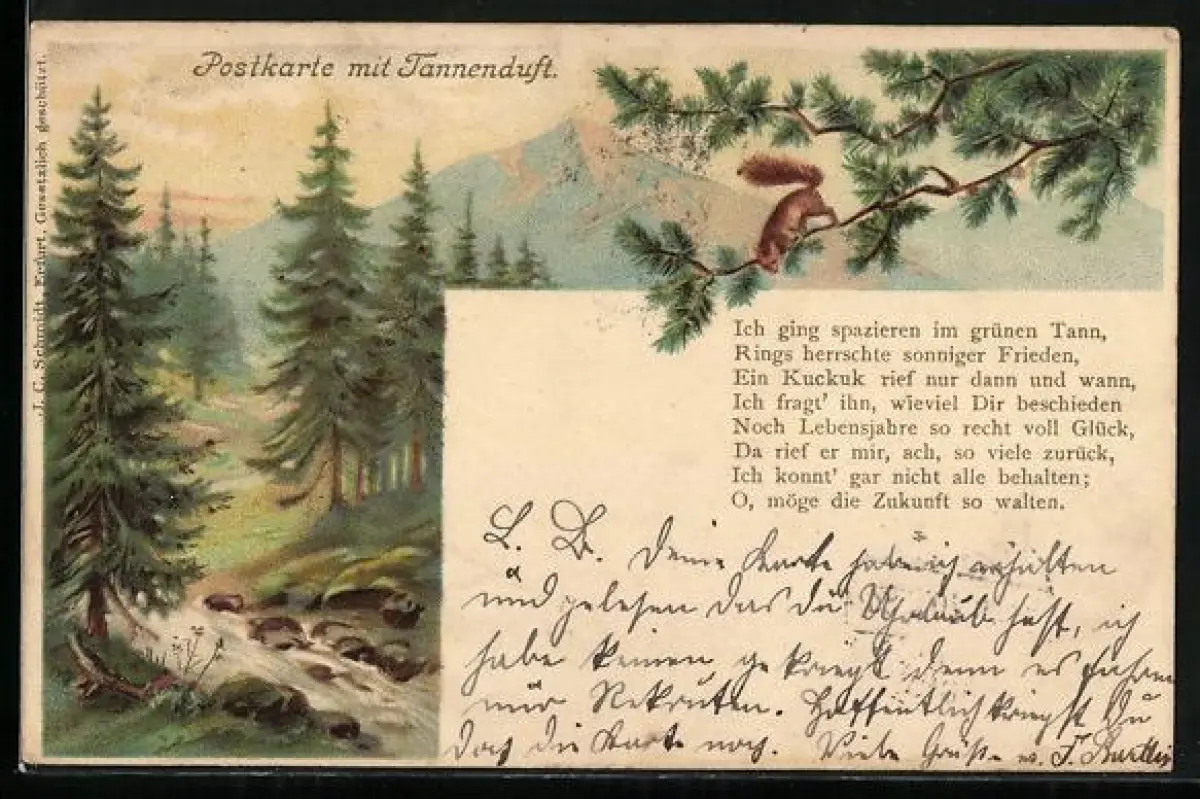 Postkarte mit Tannenduft.
J. C. Schmidt, Erfurt, Gesetzlich geschützt.
Ich ging spazieren im grünen Tann,
Rings herrschte sonniger Frieden,
Ein Kuckuk rief nur dann und wann,
Ich fragt' ihn, wieviel Dir beschieden
Noch Lebensjahre so recht voll Glück,
Da rief er mir, ach, so viele zurück,
Ich konnt' gar nicht alle behalten;
O, möge die Zukunft so walten.
L. B. Deine Karte habe ich erhalten
und gelesen das du Uhrlaub hast, ich
habe keinen gekriegt denn es fahren
nur Rekruten. Hoffentlich kriegst Du
doch die Karte noch. Viele Grüße